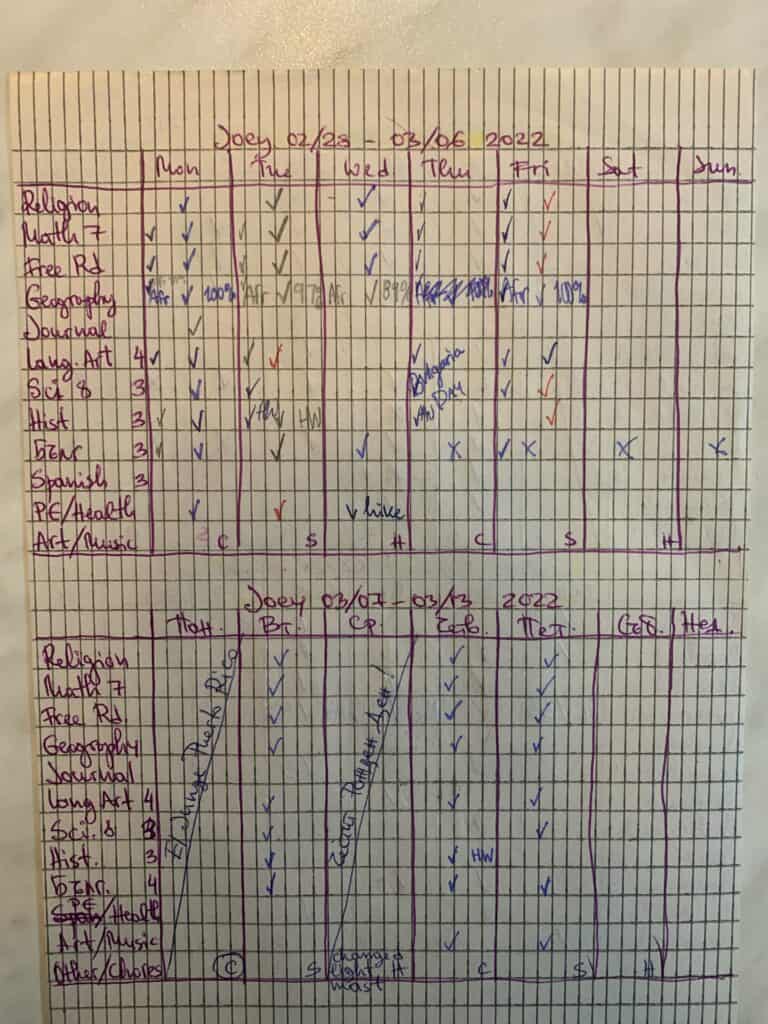 Joey 02/28 - 03/06 2022
Mon Tue Wed Thu Fri Sat Sun
Religion ✓ ✓ ✓ ✓ ✓ ✓
Math 7 ✓ ✓ ✓ ✓ ✓ ✓ ✓ ✓
Free Rd ✓ ✓ ✓ ✓ ✓ ✓ ✓ ✓
Geography Afr ✓ 100% Afr ✓ 97% Afr ✓ 89% Afr ✓ 100%
Journal ✓
Lang. Art 4 ✓ ✓ ✓ ✓ ✓ ✓ ✓
Sci 8 3 ✓ ✓ Bulgaria ✓ ✓
Hist 3 ✓ ✓ ✓ ✓ HW DAY ✓
Бълг 3 ✓ ✓ ✓ ✓ x ✓ x x x
Spanish 3
PE/Health ✓ ✓ ✓ hike
Art/Music C S H C S H
Joey 03/07 - 03/13 2022
Пон. Вт. Ср. Четв. Пет. Съб. Нед.
Religion ✓ ✓ ✓
Math 7 ✓ ✓ ✓
Free Rd. ✓ ✓ ✓
Geography ✓ ✓ ✓
Journal
El Yunque Puerto Rico
Рожден Ден!
Lang Art 4 ✓ ✓ ✓
Sci. 8 3 ✓ ✓
Hist. 3 ✓ ✓ HW
Бълг. 4 ✓ ✓ ✓
PE/Health
Art/Music ✓ ✓
Other/Chores C S changed light, mast H C S H